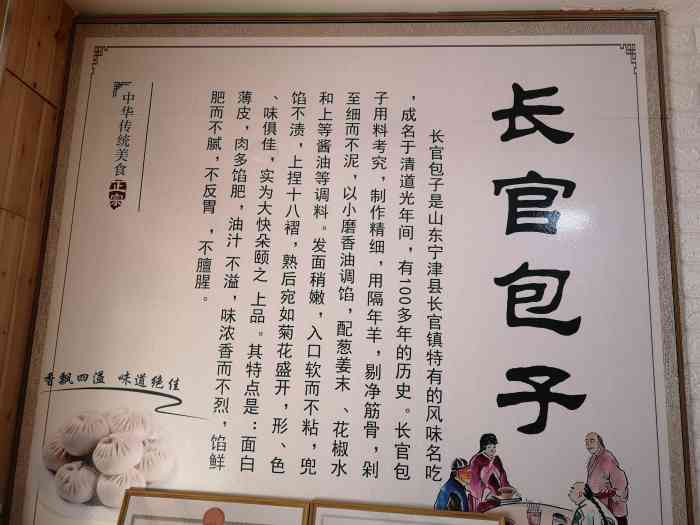 长官包子
长官包子是山东宁津县长官镇特有的风味名吃
，成名于清道光年间，有100多年的历史。长官包
子用料考究，制作精细，用隔年羊，剔净筋骨，剁
至细而不泥，以小磨香油调馅，配葱姜末、花椒水
和上等酱油等调料。发面稍嫩，入口软而不粘，兜
馅不渍，上捏十八褶，熟后宛如菊花盛开，形、色
、味俱佳，实为大快朵颐之 上品。其特点是：面白
薄皮，肉多馅肥，油汁 不溢，味浓香而不烈，馅鲜
肥而不腻，不反胃 ，不膻腥。
中华传统美食正宗
香飘四溢 味道绝佳